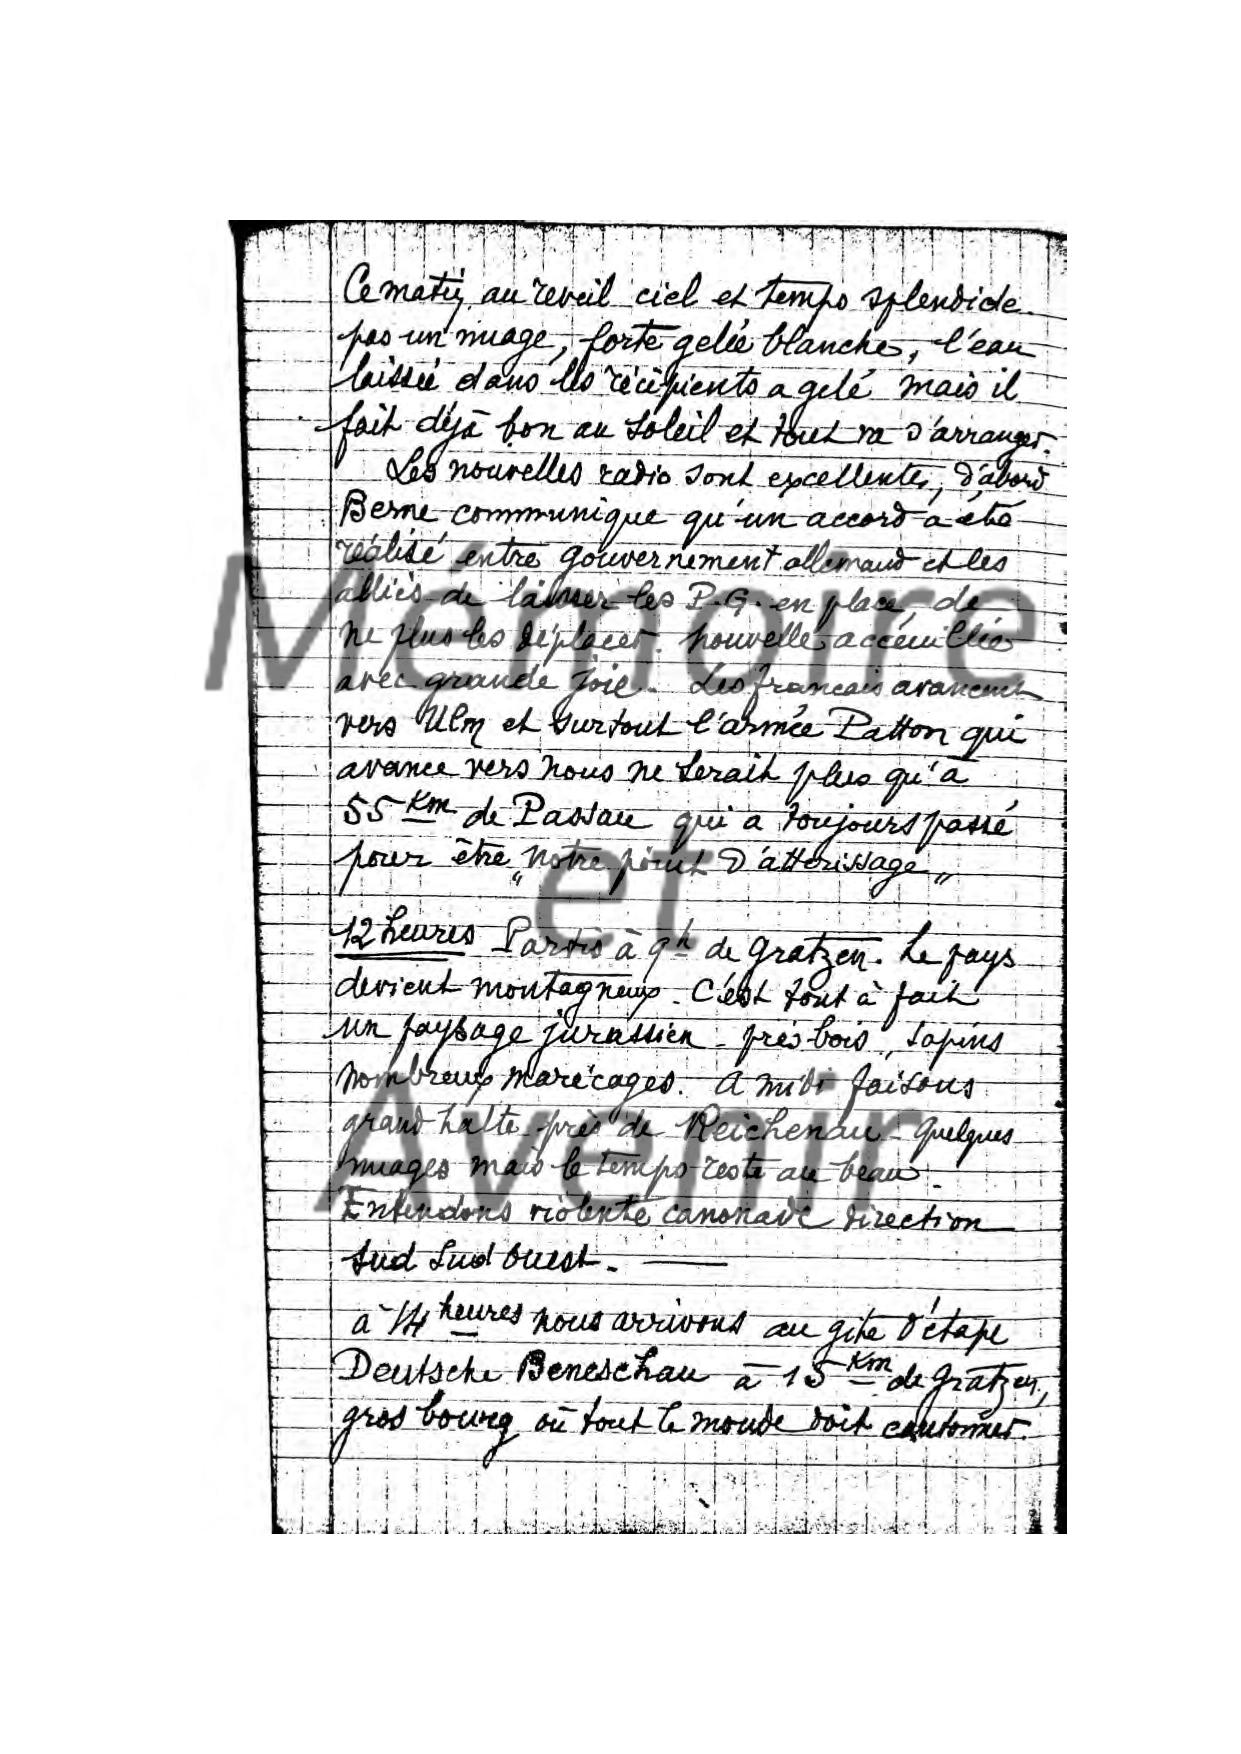 Ce matin au reveil ciel et temps splendide
pas un nuage, forte gelée blanche, l'eau
laissée dans les récipients a gelé mais il
fait déjà bon au soleil et tout va s'arranger.
Les nouvelles radio sont excellentes, d'abord
Berne communique qu'un accord a été
réalisé entre gouvernement allemand et les
alliés de laisser les P.G. en place, de
ne plus les déplacer. Nouvelle accéuillie
avec grande joie. Les francais avancent
vers Ulm et surtout l'armée Patton qui
avance vers nous ne serait plus qu'à
55 Km de Passau qui a toujours passé
pour être "notre point d'atterissage"
12 heures Partis à 9h de Gratzen. Le pays
devient montagneux. C'est tout à fait
un paysage jurassien - prés-bois, sapins
nombreux marécages. A midi faisons
grand halte près de Reichenau - Quelques
nuages mais le temps reste au beau.
Entendons violente canonade direction
sud sud ouest. —
à 14 heures nous arrivons au gite d'étape
Deutsche Beneschau à 15 Km de Gratzen,
gros bourg où tout le monde doit cantonner.
Mémoire
et
Avenir